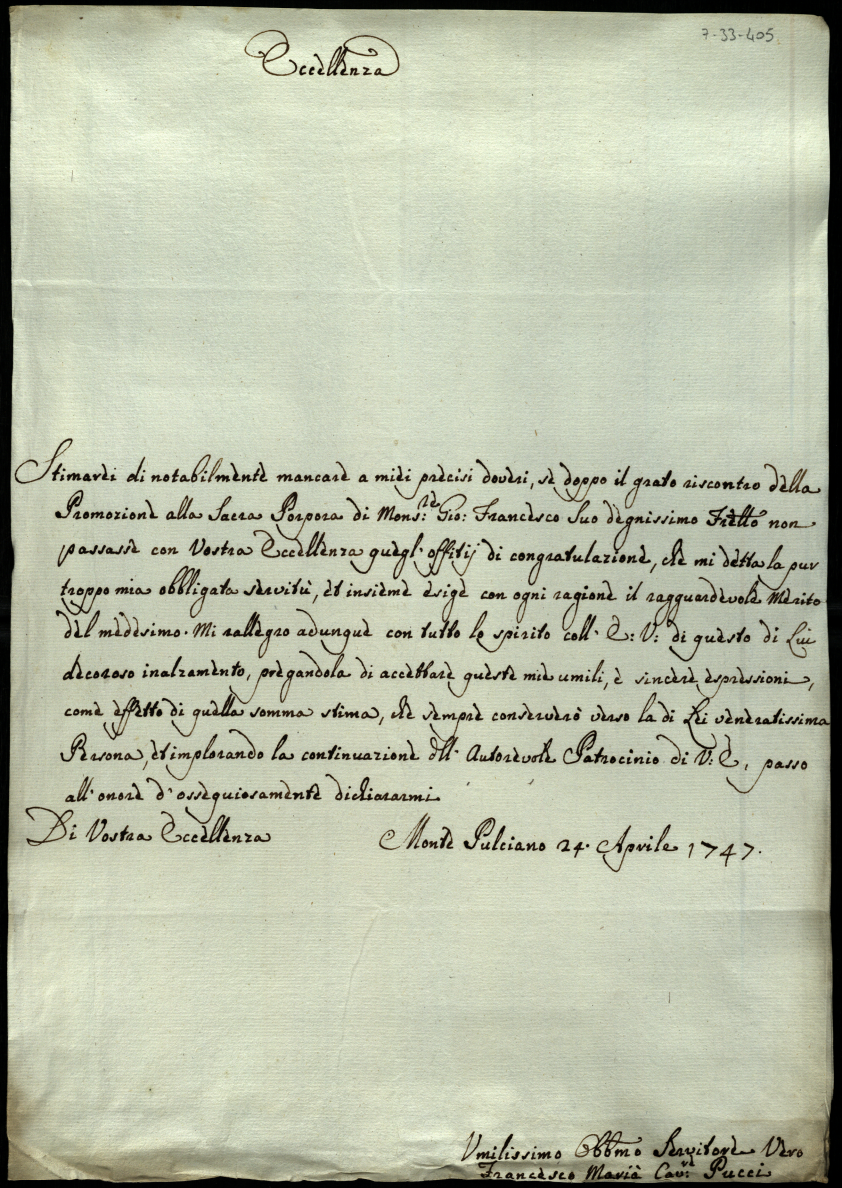 7-33-405
Eccellenza
Stimarei di notabilmente mancare a miei precisi doveri, se doppo il grato riscontro della
Promozione alla Sacra Porpora di Mons:re Gio: Francesco Suo degnissimo Frello non
passasse con Vostra Eccellenza quegl' offitij di congratulazione, che mi detta la pur
troppo mia obbligata servitù, et insieme esige con ogni ragione il ragguardevole Merito
del medesimo. Mi rallegro adunque con tutto lo spirito coll' E: V: di questo di Lui
decoroso inalzamento, pregandola di accettare queste mie umili, e sincere espressioni,
come effetto di quella somma stima, che sempre conserverò verso la di Lei veneratissima
Persona, et implorando la continuazione dell' Autorevole Patrocinio di V: E, passo
all' onore d' ossequiosamente dichiararmi
Di Vostra Eccellenza Monte Pulciano 24. Aprile 1747.
Vmilissimo Obbmo Servitore Vero
Francesco Maria Cav:re Pucci